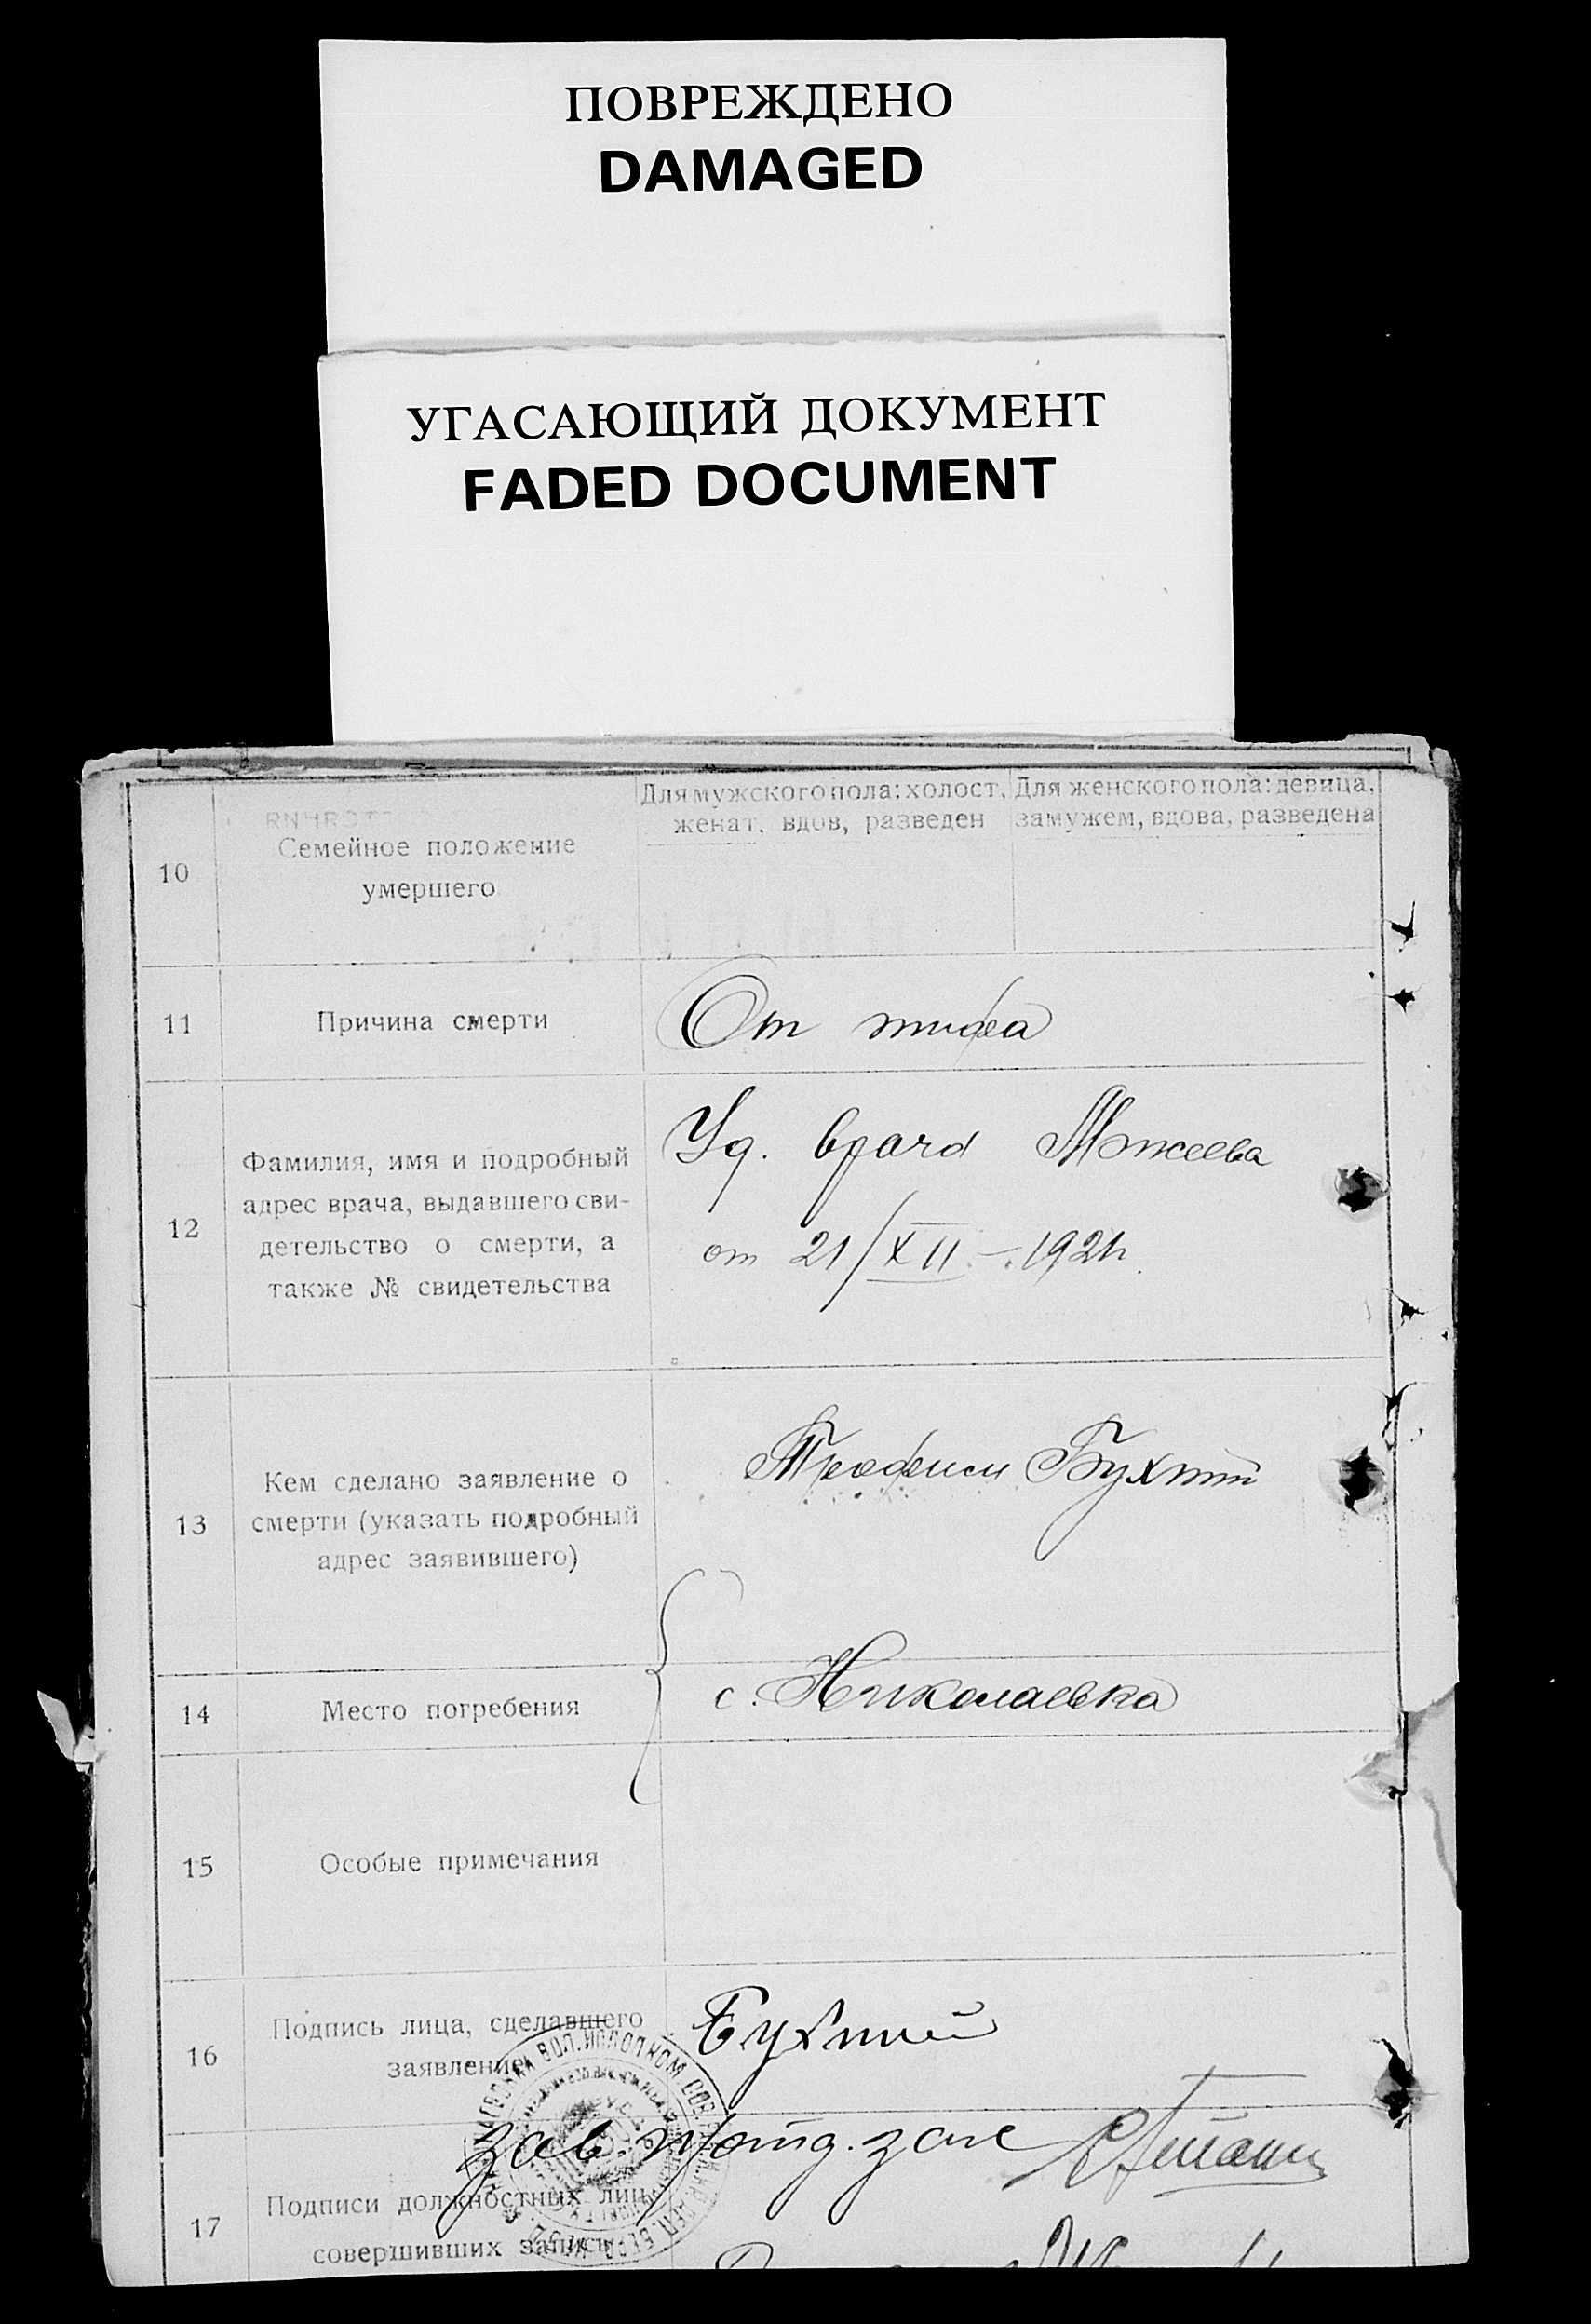 ПОВРЕЖДЕНО
DAMAGED
УГАСАЮЩИЙ ДОКУМЕНТ
FADED DOCUMENT
Для мужского пола: холост, женат, вдов, разведен
Для женского пола: девица, замужем, вдова, разведена
10
Семейное положение
умершего
11
Причина смерти
От тифа
12
Фамилия, имя и подробный
адрес врача, выдавшего сви-
детельство о смерти, а
также № свидетельства
Уд. врача
от 21/XII – 1921г.
13
Кем сделано заявление о
смерти (указать подробный
адрес заявившего)
Трофим Бухтий
14
Место погребения
с. Николаевка
15
Особые примечания
16
Подпись лица, сделавшего
заявление
Бухтий
Зав. п/отд. загс
17
Подписи должностных лиц,
совершивших запись